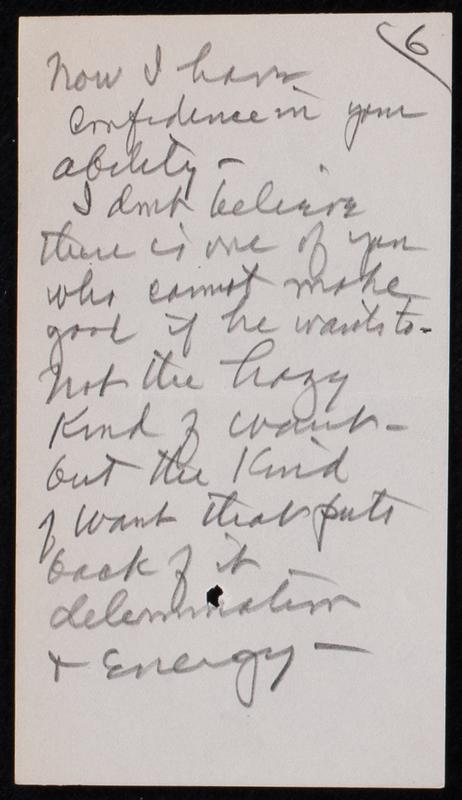 6
Now I have
confidence in your
ability -
I don't believe
there is one of you
who cannot make
good if he wants to -
Not the hazy
kind of want -
but the kind
of want that puts
back of it
determination
& Energy -